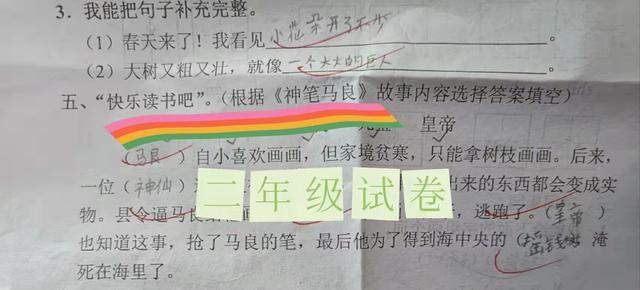 3. 我能把句子补充完整。
(1) 春天来了!我看见小花朵开了不少。
(2) 大树又粗又壮,就像一个大大的巨人。
五、“快乐读书吧”。(根据《神笔马良》故事内容选择答案填空)
皇帝
(马良)自小喜欢画画,但家境贫寒,只能拿树枝画画。后来,
一位(神仙)出来的东西都会变成实
二年级试卷
物。县令逼马良,逃跑了。(皇帝)
也知道这事,抢了马良的笔,最后他为了得到海中央的(摇钱树)淹
死在海里了。